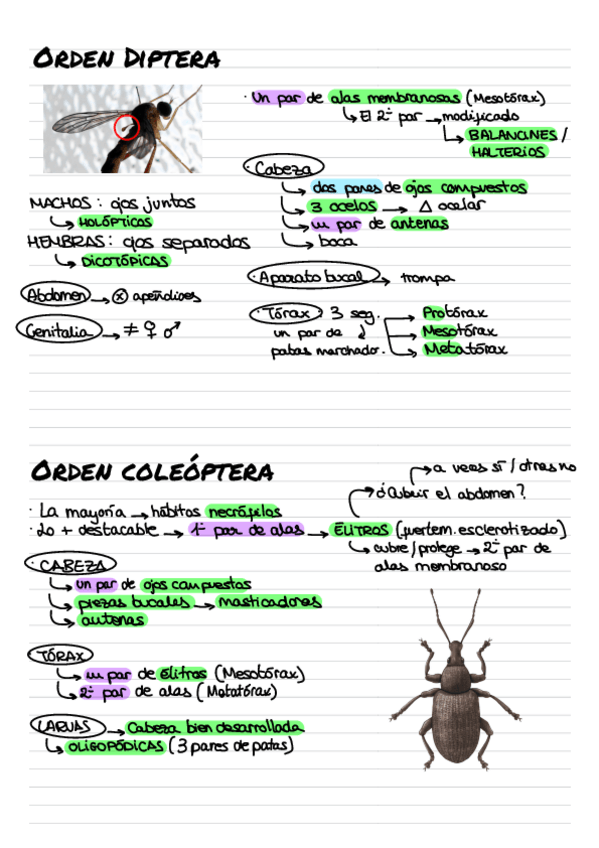 ORDEN DIPTERA
· Un par de alas membranosas (Mesotórax)
↳ El 2º par → modificado
↳ BALANCINES /
HALTERIOS
MACHOS : ojos juntos
↳ HOLÓPTICOS
HEMBRAS : ojos separados
↳ DICOTÓPICAS
Abdomen → ⓧ apéndices
Genitalia → ≠ ♀ ♂
· Cabeza
↳ dos pares de ojos compuestos
↳ 3 ocelos → Δ ocelar
↳ un par de antenas
↳ boca
· Aparato bucal → trompa
· Tórax : 3 seg. → Protórax
un par de ↲ → Mesotórax
patas marchador. → Metatórax
ORDEN COLEÓPTERA
→ a veces sí / otras no
→ ¿Cubrir el abdomen?
· La mayoría → hábitos necrófilos
· Lo + destacable → 1º par de alas → ÉLITROS (fuertem. esclerotizado)
↳ cubre/protege → 2º par de
alas membranoso
· CABEZA
↳ un par de ojos compuestos
↳ piezas bucales → masticadores
↳ antenas
· TÓRAX
↳ un par de élitros (Mesotórax)
↳ 2º par de alas (Metatórax)
LARVAS → Cabeza bien desarrollada
↳ OLIGOPÓDICAS (3 pares de patas)